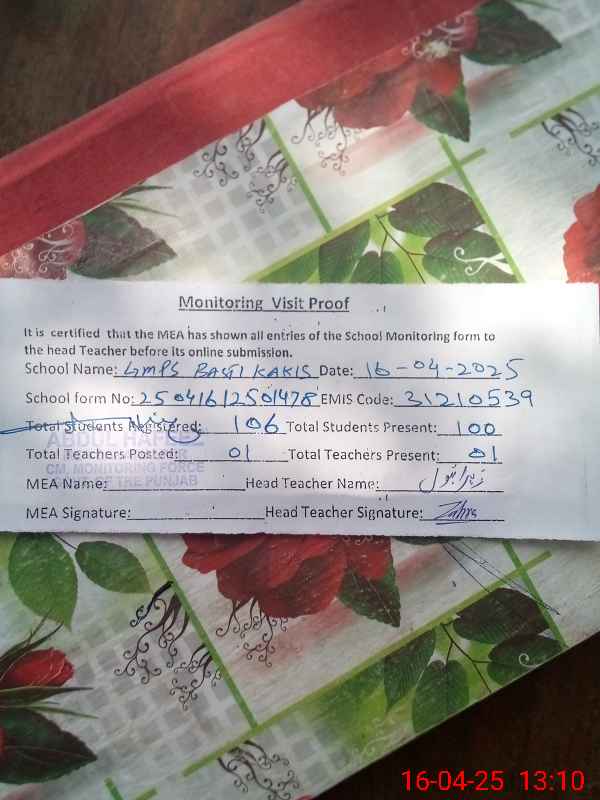 Monitoring Visit Proof
It is certified that the MEA has shown all entries of the School Monitoring form to
the head Teacher before its online submission.
School Name: GMPS BASTI KAKIS Date: 16-04-2025
School form No: 250416/2501478 EMIS Code: 31210539
Total Students Registered: 106 Total Students Present: 100
ABDUL HAFEEZ
Total Teachers Posted: 01 Total Teachers Present: 01
CM. MONITORING FORCE
MEA Name: Head Teacher Name: زہرا بتول
GOVT OF THE PUNJAB
MEA Signature: Head Teacher Signature: Zahra
16-04-25 13:10